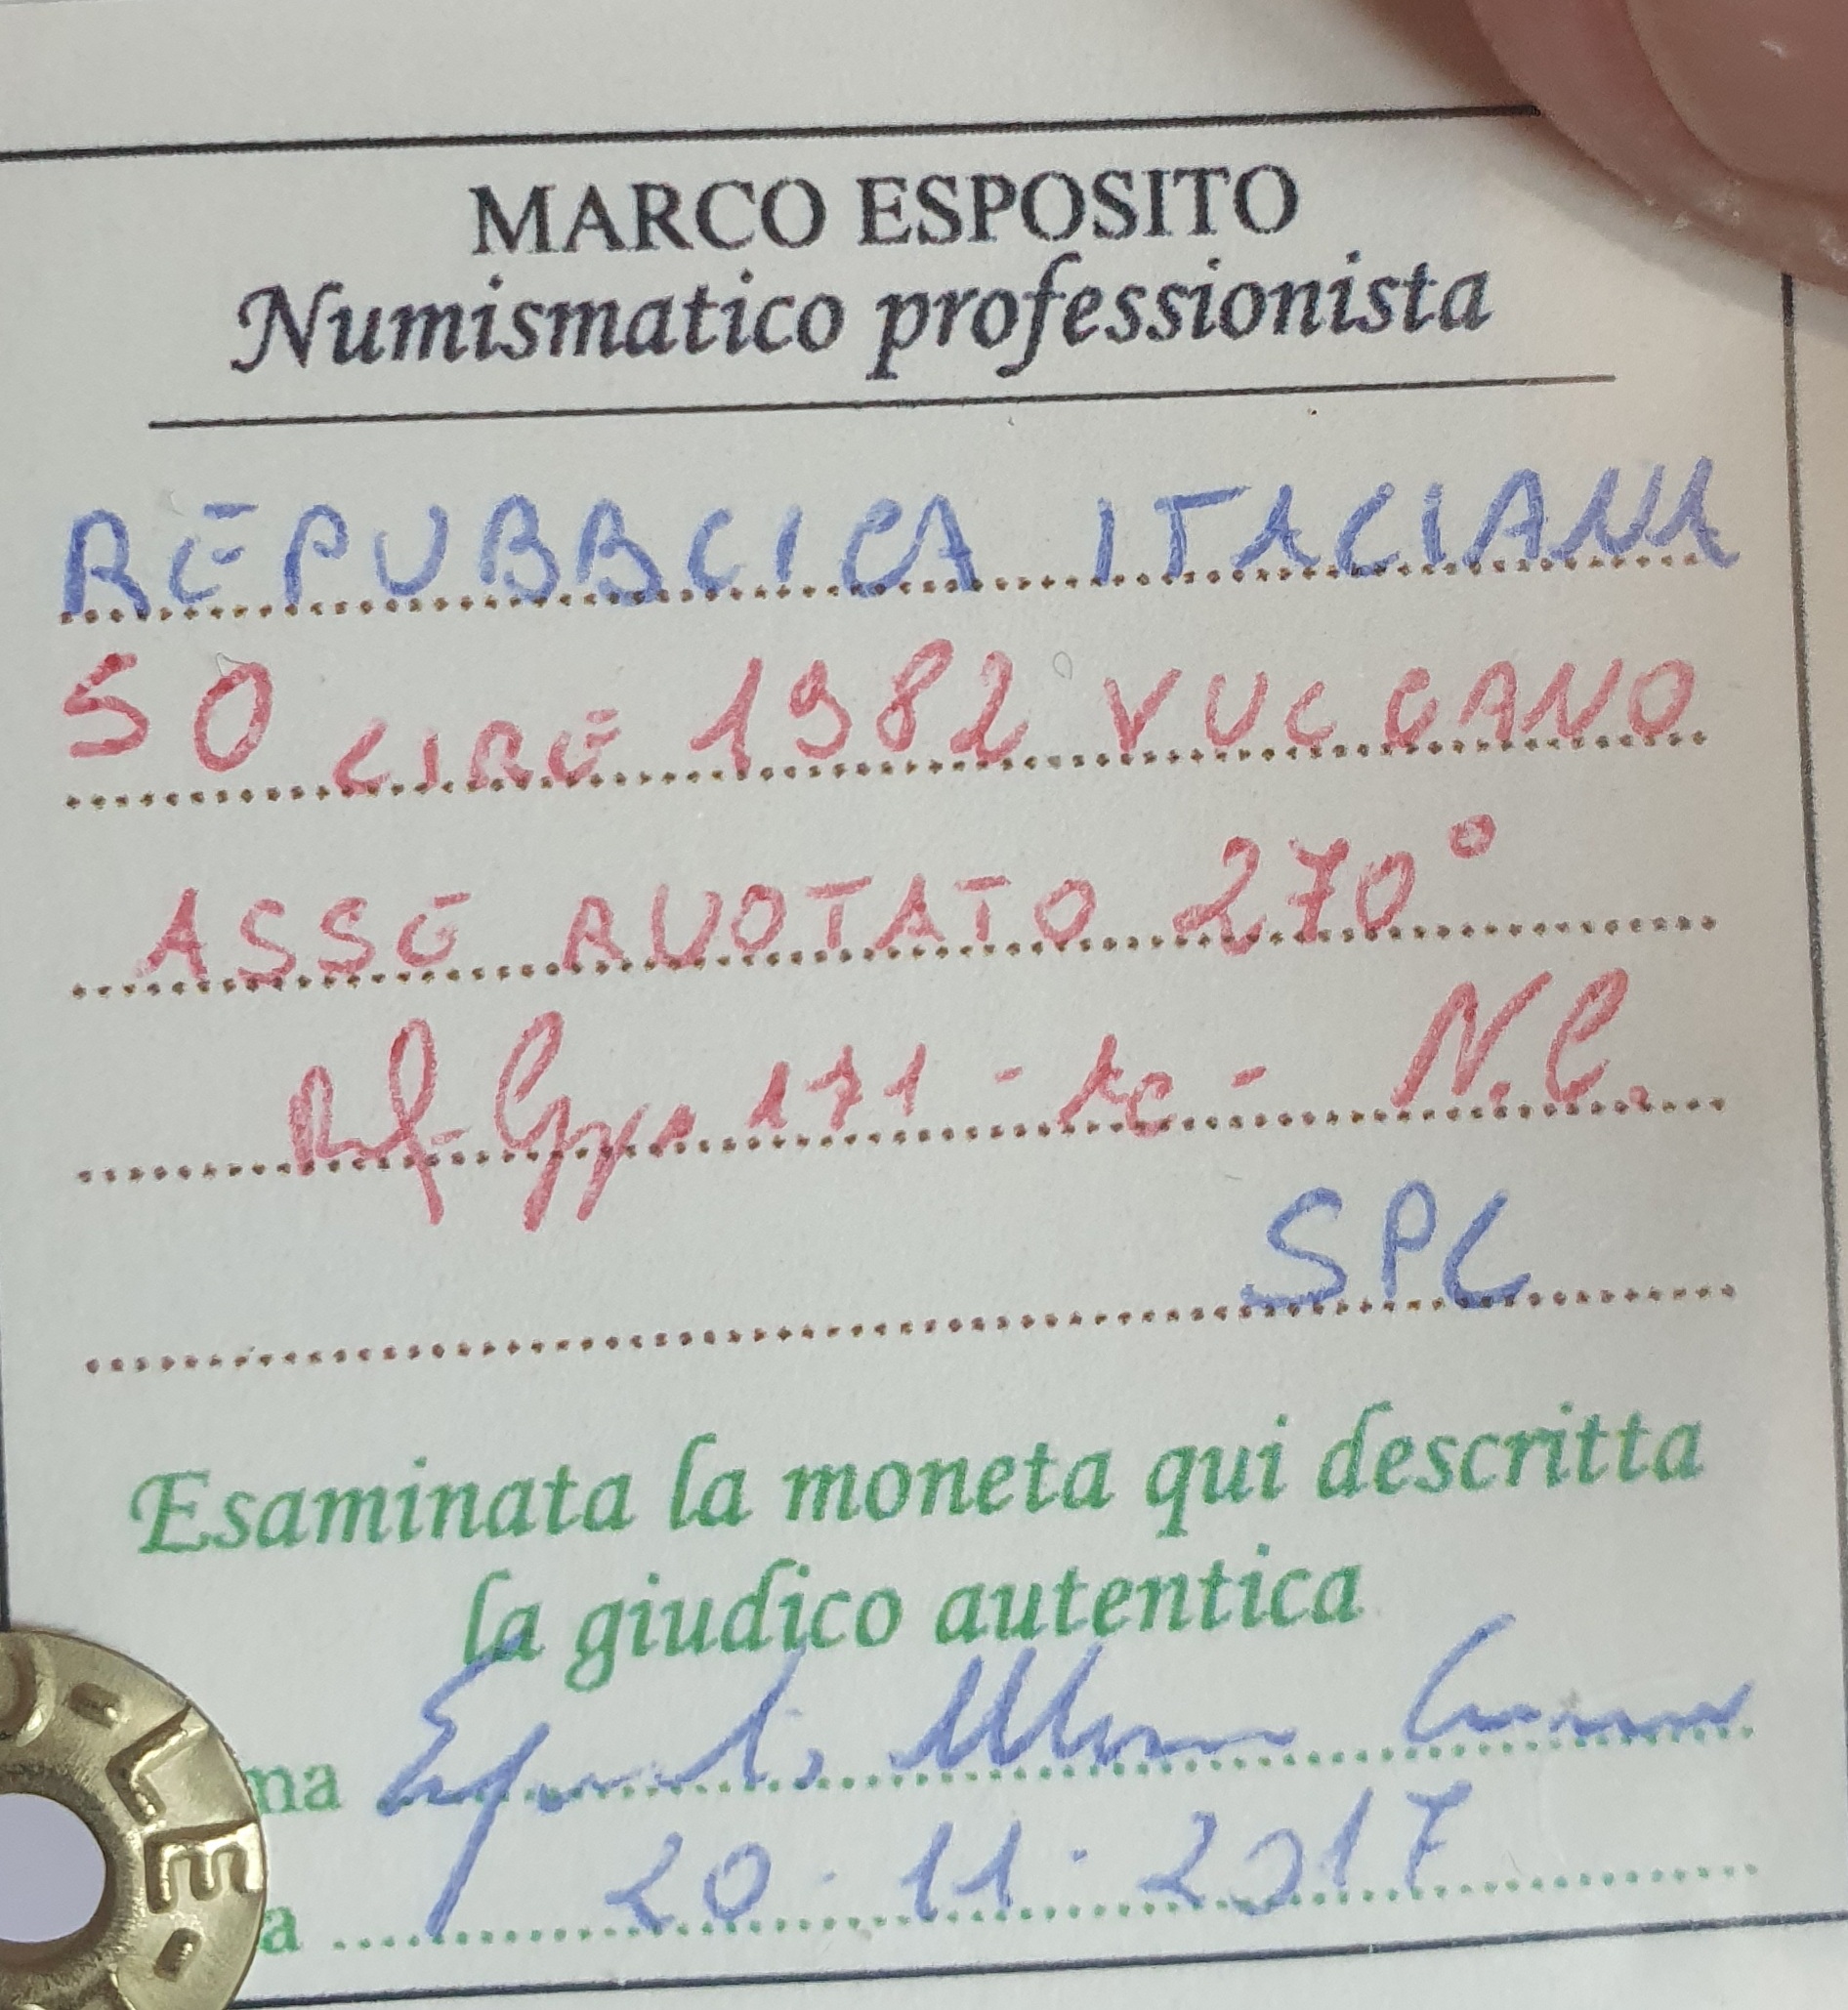 MARCO ESPOSITO
Numismatico professionista
REPUBBLICA ITALIANA
50 LIRE 1982 VULCANO
ASSE RUOTATO 270°
Rif. 171 - N.C.
SPL
Esaminata la moneta qui descritta
la giudico autentica
ma Esposito Marco
a 20·11·2017
LE